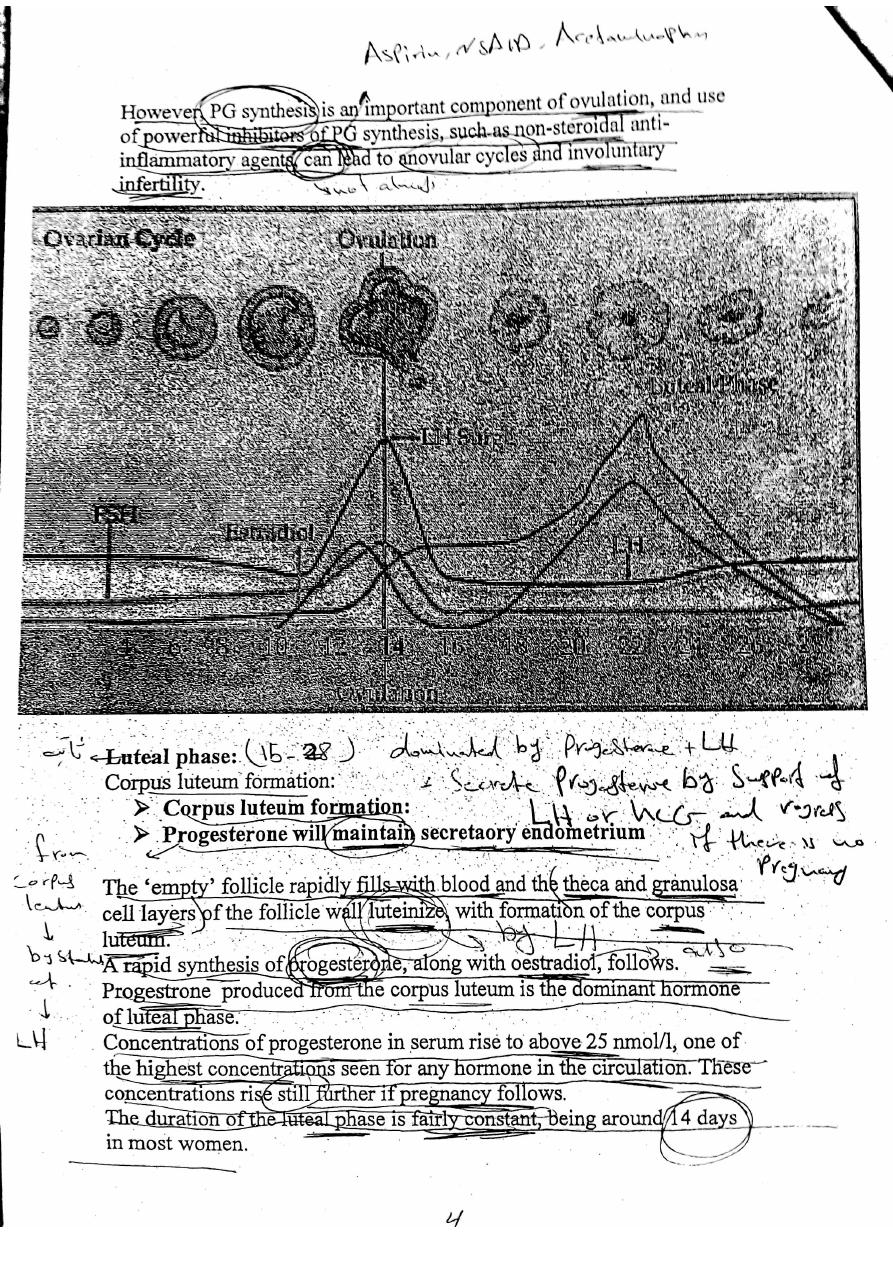 Aspirin, NSAID, Acetaminophen
However, PG synthesis is an important component of ovulation, and use
of powerful inhibitors of PG synthesis, such as non-steroidal anti-
inflammatory agents, can lead to anovular cycles and involuntary
infertility.
not always
Ovarian Cycle
Ovulation
Luteal Phase
LH Surge
FSH
Estradiol
LH
2 4 6 8 10 12 14 16 18 20 22 24 26
Ovulation
ثابت
Luteal phase: (15-28) dominated by Progesterone + LH
Corpus luteum formation:
Secrete Progesterone by Support of
LH or hCG and regress
if there is no
Pregnancy
➢ Corpus luteum formation:
➢ Progesterone will maintain secretaory endometrium
from
corpus
luteum
↓
↓
LH
The ‘empty’ follicle rapidly fills with blood and the theca and granulosa
cell layers of the follicle wall luteinize, with formation of the corpus
luteum.
by LH
also
A rapid synthesis of progesterone, along with oestradiol, follows.
Progestrone produced from the corpus luteum is the dominant hormone
of luteal phase.
Concentrations of progesterone in serum rise to above 25 nmol/l, one of
the highest concentrations seen for any hormone in the circulation. These
concentrations rise still further if pregnancy follows.
The duration of the luteal phase is fairly constant, being around 14 days
in most women.
4